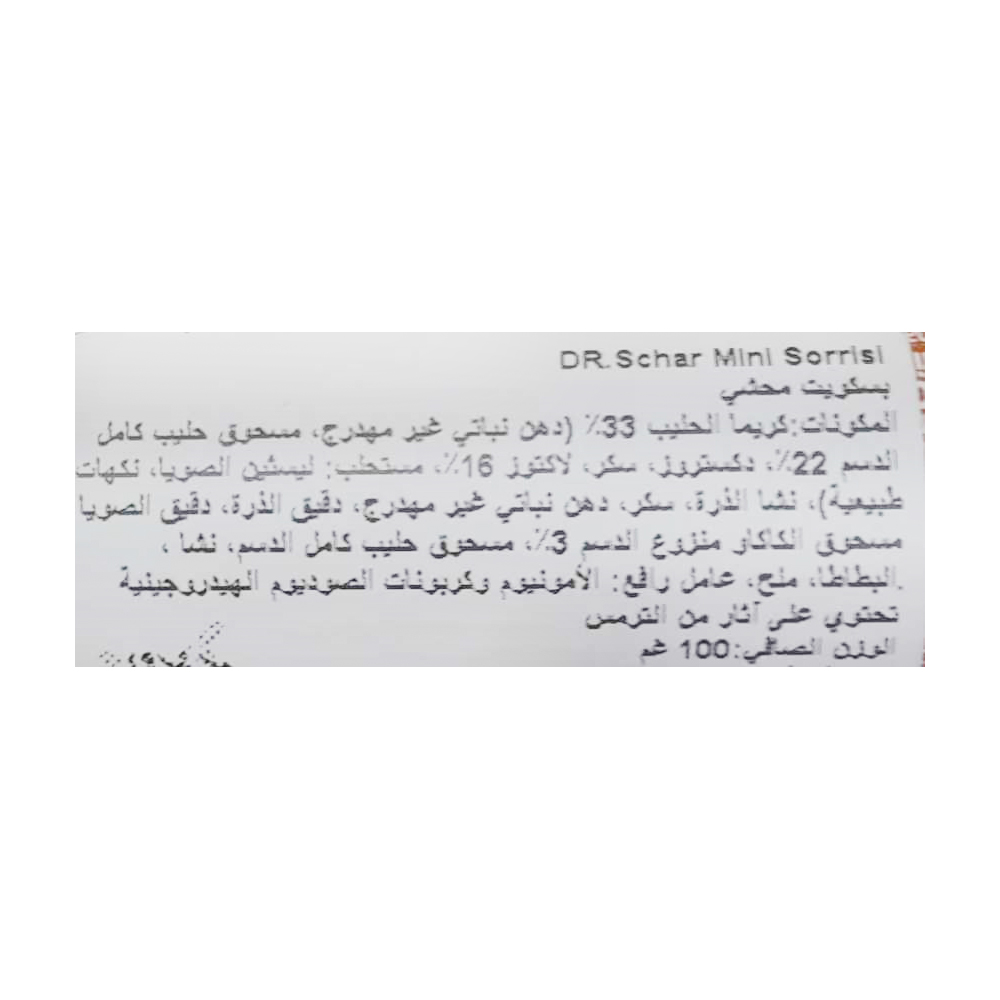 DR.Schar Mini Sorrisi
بسكويت محشي
المكونات:كريما الحليب 33٪ (دهن نباتي غير مهدرج، مسحوق حليب كامل
الدسم 22٪، دكستروز، سكر، لاكتوز 16٪، مستحلب: ليسثين الصويا، نكهات
طبيعية)، نشا الذرة، سكر، دهن نباتي غير مهدرج، دقيق الذرة، دقيق الصويا
مسحوق الكاكاو منزوع الدسم 3٪، مسحوق حليب كامل الدسم، نشا ،
.البطاطا، ملح، عامل رافع: الأمونيوم وكربونات الصوديوم الهيدروجينية
تحتوي على آثار من الترمس
الوزن الصافي:100 غم